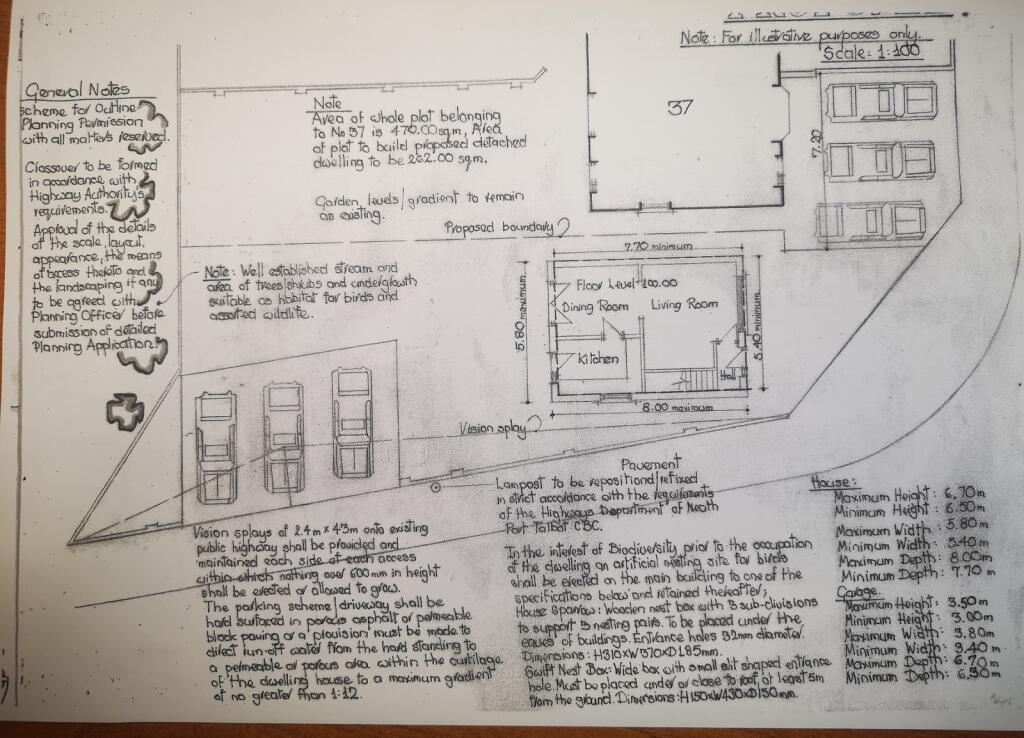 Note: For illustrative purposes only.
Scale: 1:100
General Notes
Scheme for Outline
Planning Permission
with all matters reserved.
Crossover to be formed
in accordance with
Highway Authority's
requirements.
Approval of the details
of the scale, layout,
appearance, the means
of access thereto and
the landscaping if any
to be agreed with
Planning Officer before
submission of detailed
Planning Application.
Note
Area of whole plot belonging
to No 37 is 470.00 sq.m, Area
of plot to build proposed detached
dwelling to be 262.00 sq.m,
Garden levels/gradient to remain
as existing.
37
7.20
Proposed boundary
Note: Well established stream and
area of trees/shrubs and undergrowth
suitable as habitat for birds and
assorted wildlife.
7.70 minimum
5.80 maximum
Floor Level +100.00
Dining Room
Living Room
Kitchen
Hall
5.40 minimum
8.00 maximum
Vision splay
Pavement
Lampost to be repositiond/refixed
in strict accordance with the requirements
of the Highways Department of Neath
Port Talbot CBC.
Vision splays of 2.4m x 43m onto existing
public highway shall be provided and
maintained each side of each access
within which nothing over 600mm in height
shall be erected or allowed to grow.
The parking scheme/driveway shall be
hard surfaced in porous asphalt or permeable
block paving or a 'provision' must be made to
direct run-off water from the hard standing to
a permeable or porous area within the curtilage
of the dwelling house to a maximum gradient
of no greater than 1:12.
In the interest of Biodiversity prior to the occupation
of the dwelling an artificial nesting site for birds
shall be erected on the main building to one of the
specifications below and retained thereafter;
House Sparrow: Wooden nest box with 3 sub-divisions
to support 3 nesting pairs. To be placed under the
eaves of buildings. Entrance holes 32mm diameter.
Dimensions: H310xW370xD185mm.
Swift Nest Box: Wide box with small slit shaped entrance
hole. Must be placed under or close to roof, at least 5m
from the ground. Dimensions: H150xW430xD150mm.
House:
Maximum Height: 6.70m
Minimum Height: 6.50m
Maximum Width: 5.80m
Minimum Width: 5.40m
Maximum Depth: 8.00m
Minimum Depth: 7.70m
Garage.
Maximum Height: 3.50m
Minimum Height: 3.00m
Maximum Width: 3.80m
Minimum Width: 3.40m
Maximum Depth: 6.70m
Minimum Depth: 6.30m